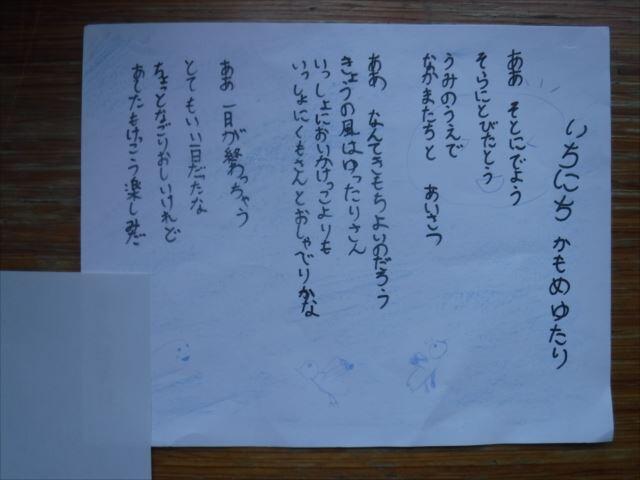 いちにち かもめゆたり
ああ そとにでよう
そらにとびだとう
うみのうえで
なかまたちと あいさつ
ああ なんてきもちよいのだろう
きょうの風はゆったりさん
いっしょにおいかけっこよりも
いっしょにくもさんとおしゃべりかな
ああ 一日が終わっちゃう
とてもいい一日だたな
ちょっとなごりおしいけれど
あしたもけっこう楽しみだ